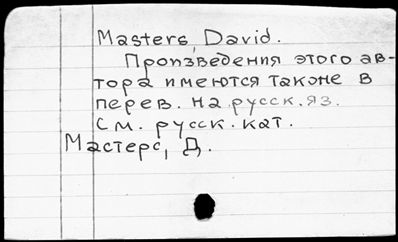 Masters, David.
Произведения этого ав-
тора имеются также в
перев. на русск. яз.
См. русск. кат.
Мастерс, Д.